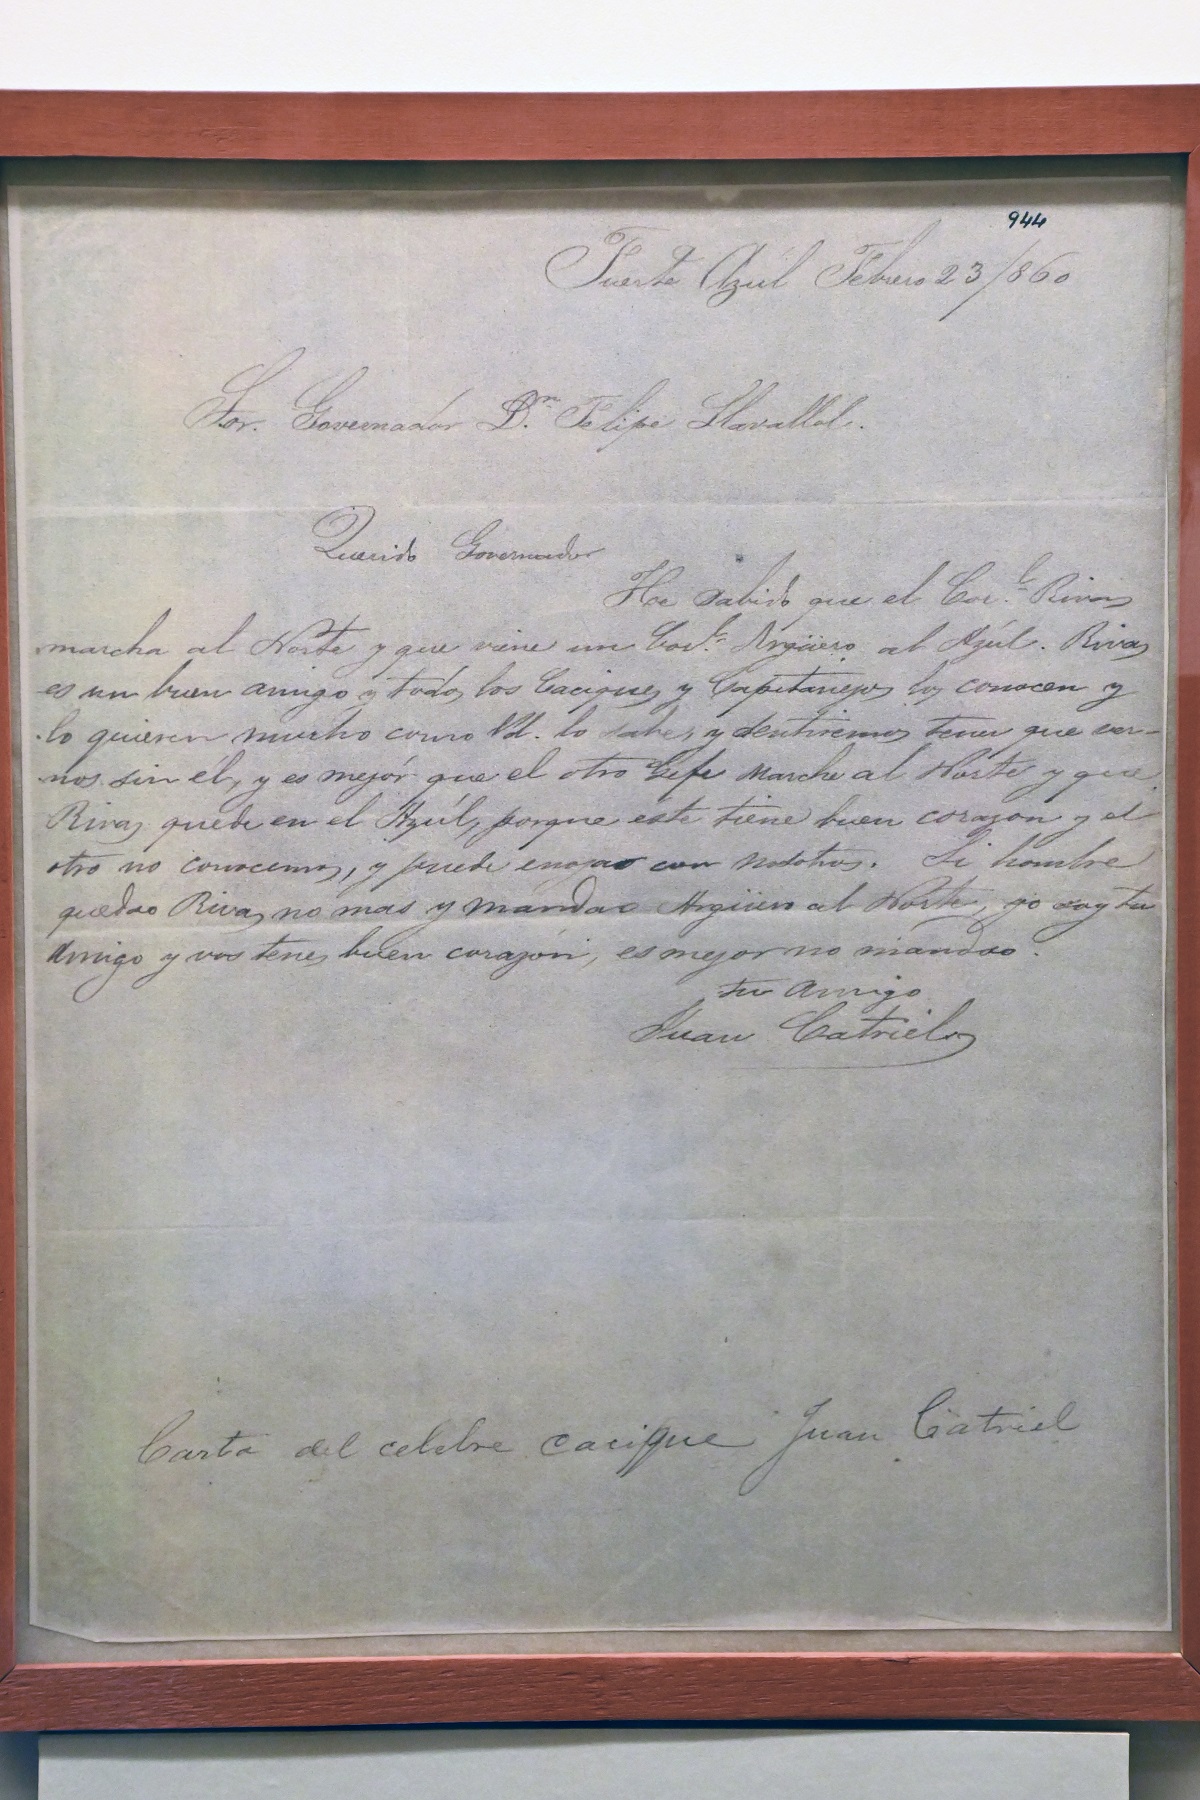 944
Fuerte Azúl Febrero 23/860
Sor. Governador Dn. Felipe Llavallol.
Querido Governador
He sabido que el Cor.l Rivas
marcha al Norte y que viene un Cor.l Argüero al Azúl. Rivas
es un buen amigo y todos los Caciques y Capitanejos los conocen y
lo quieren mucho como Vd. lo sabe, y sentiremos tener que ver-
nos sin él, y es mejór que el otro Gefe marche al Norte y que
Rivas quede en el Azúl, porque éste tiene buen corazon y el
otro no conocemos, y puede enojao con nosotros. Si hombre
quedao Rivas no mas y mandao Argüero al Norte, yo soy tu
Amigo y vos tenes buen corazón, es mejor no mándao.
tu Amigo
Juan Catriel
Carta del celebre cacique Juan Catriel